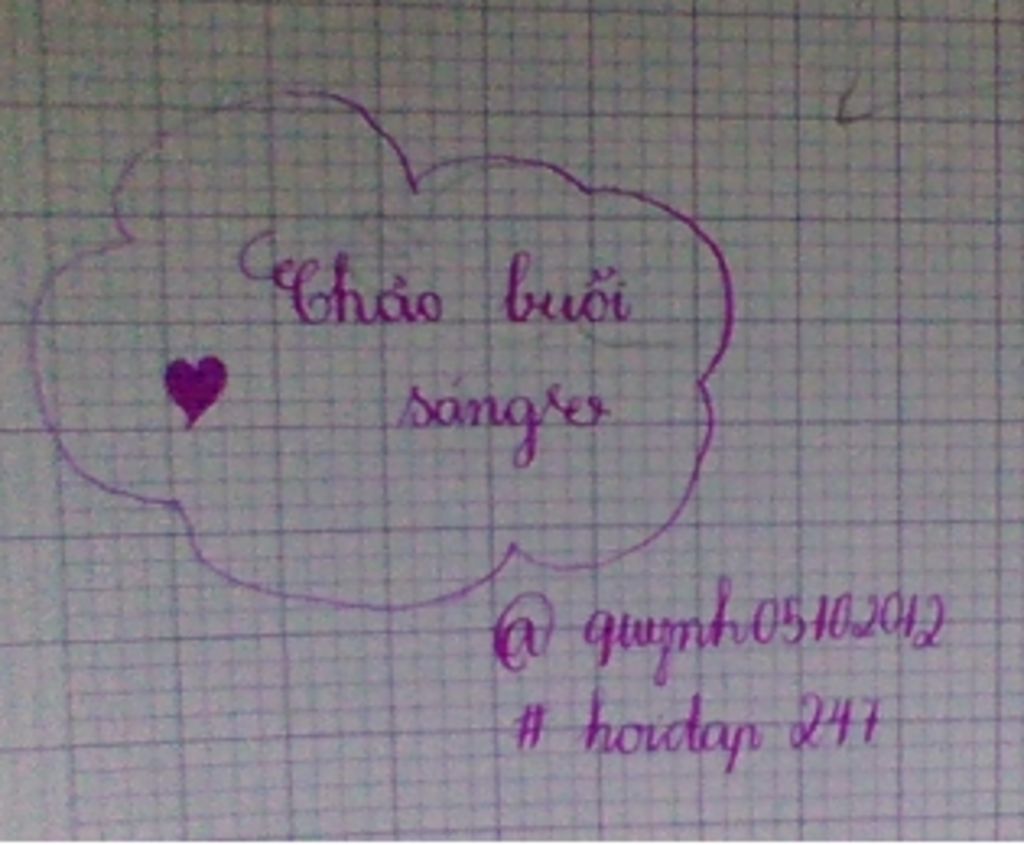 Chào buổi
sáng
@ quynh05102012
# hoidap 247